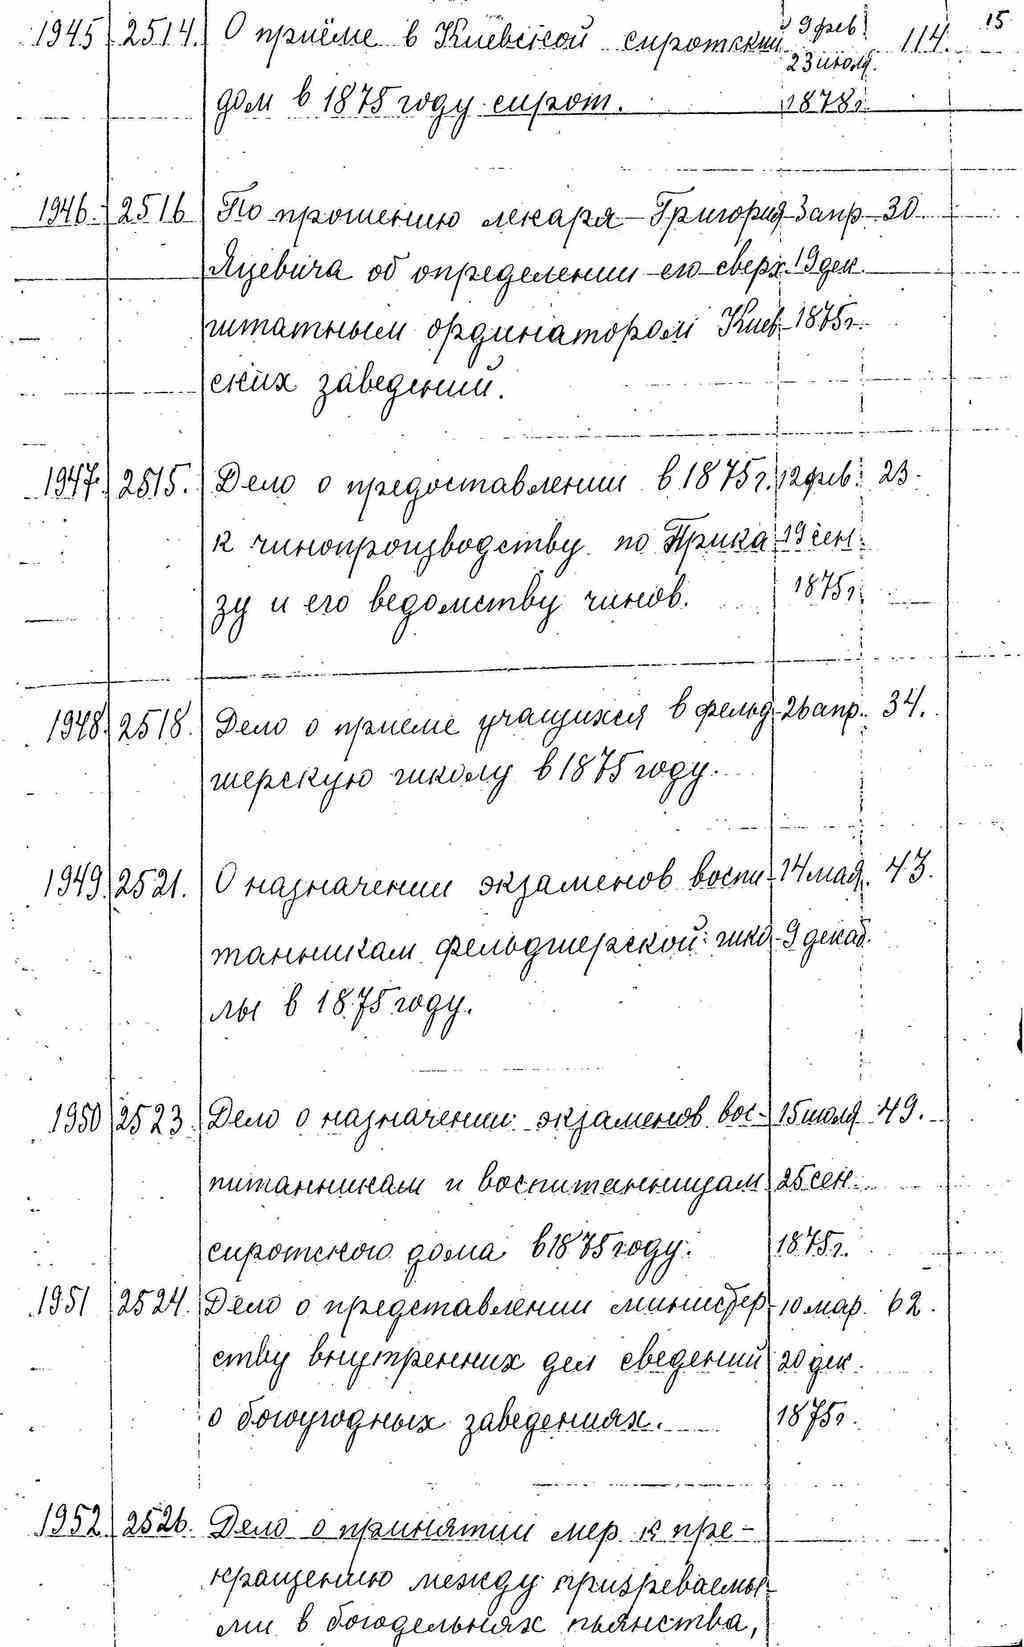 15
1945 2514. О приёме в Киевской сиротский 9 фев. 114.
23 июля.
дом в 1875 году сирот. 1878 г.
1946. 2516 По прошению лекаря Григория 3 апр. 30
Яцевича об определении его сверх- 19 дек.
штатным ординатором Киев- 1875 г.
ских заведений.
1947. 2515. Дело о предоставлении в 1875 г. 12 фев. 23.
к чинопроизводству по Прика 19 сен.
зу и его ведомству чинов. 1875 г.
1948. 2518. Дело о приеме учащихся в фельд- 26 апр. 34.
шерскую школу в 1875 году.
1949. 2521. О назначении экзаменов воспи- 14 мая. 43.
танникам фельдшерской шко- 9 декаб.
лы в 1875 году.
1950 2523. Дело о назначении экзаменов вос- 15 июля 49.
питанникам и воспитанницам 25 сен.
сиротского дома в 1875 году. 1875 г.
1951 2524. Дело о представлении министер- 10 мар. 62.
ству внутренних дел сведений 20 дек.
о богоугодных заведениях. 1875 г.
1952. 2526. Дело о принятии мер к пре-
кращению между призреваемы-
ми в богодельнях пьянства,